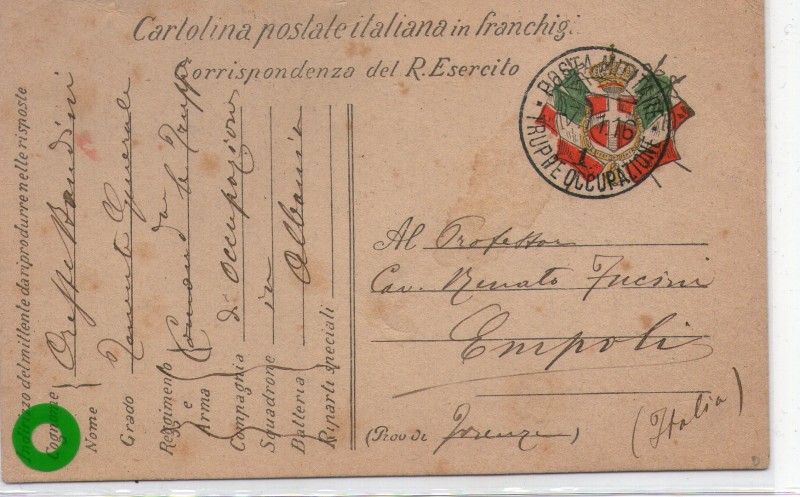 Cartolina postale italiana in franchigi
Corrispondenza del R. Esercito
POSTA MILITARE
1 16
1
TRUPPE OCCUPAZIONE
Indirizzo del mittente da riprodurre nelle risposte
Cognome
Nome
Oreste Bandini
Grado Tenente Generale
Reggimento
e
Arma
Comando Truppe
Compagnia di occupazione
Squadrone in
Batteria Albania
Riparti speciali
Al Professor
Cav. Renato Fucini
Empoli
(Prov di Firenze)
(Italia)